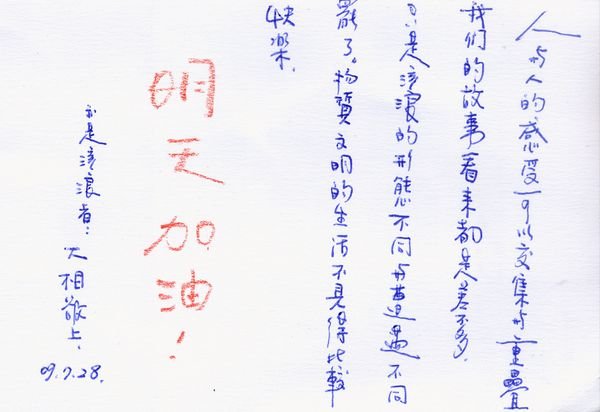 人与人的感受可以交集与重疊
我们的故事看来都是差不多.
只是流浪的形態不同与遭遇不同
罷了。物質文明的生活不見得比較
快樂.
明天加油!
亦是流浪者:
大相敬上.
09.7.28.